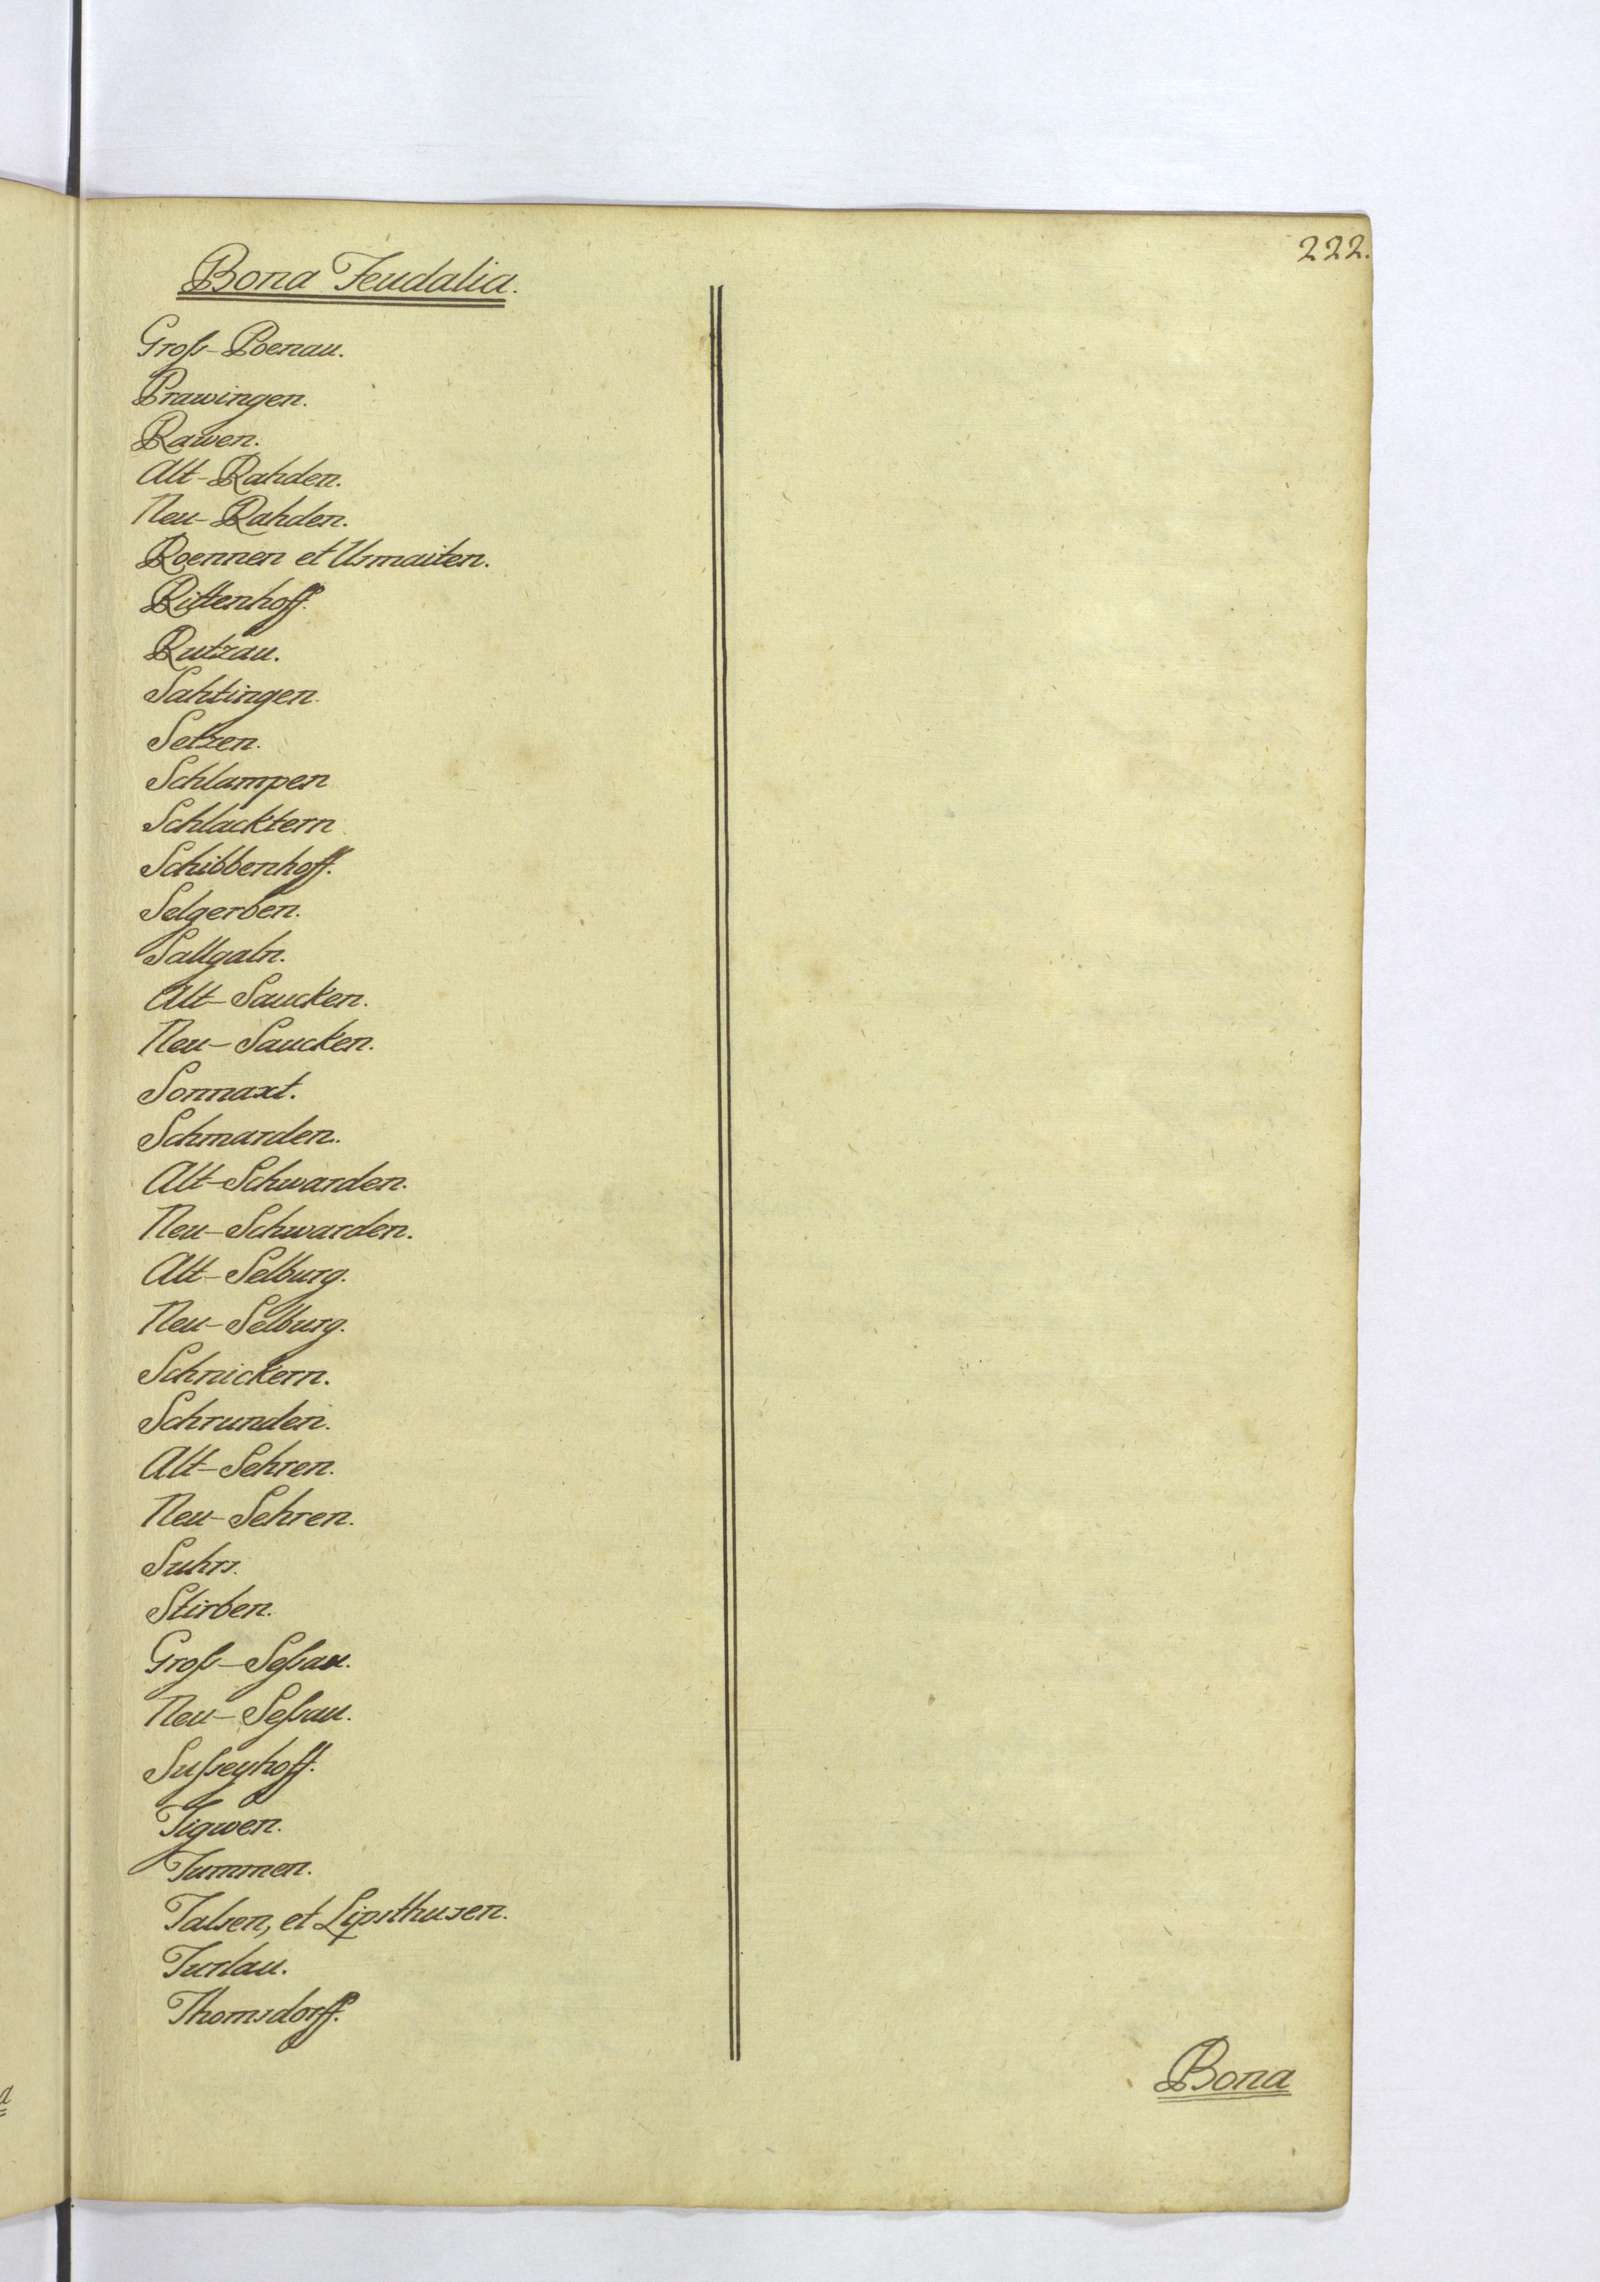 222.
Bona Feudalia.
Groß-Poenau.
Prawingen.
Rawen.
Alt-Rahden.
Neu-Rahden.
Roennen et Usmaiten.
Rittenhoff.
Rutzau.
Sahtingen.
Setzen.
Schlampen
Schlacktern
Schibbenhoff.
Selgerben.
Sallgaln.
Alt-Saucken.
Neu-Saucken.
Sonnaxt.
Schmarden.
Alt-Schwarden.
Neu-Schwarden.
Alt-Selburg.
Neu-Selburg.
Schnickern.
Schrunden.
Alt-Sehren.
Neu-Sehren.
Suhrs.
Stirben.
Groß-Seßau.
Neu-Seßau.
Sußeyhoff.
Tigwen.
Tummen.
Talsen, et Lipsthusen.
Turlau.
Thomsdorff.
Bona